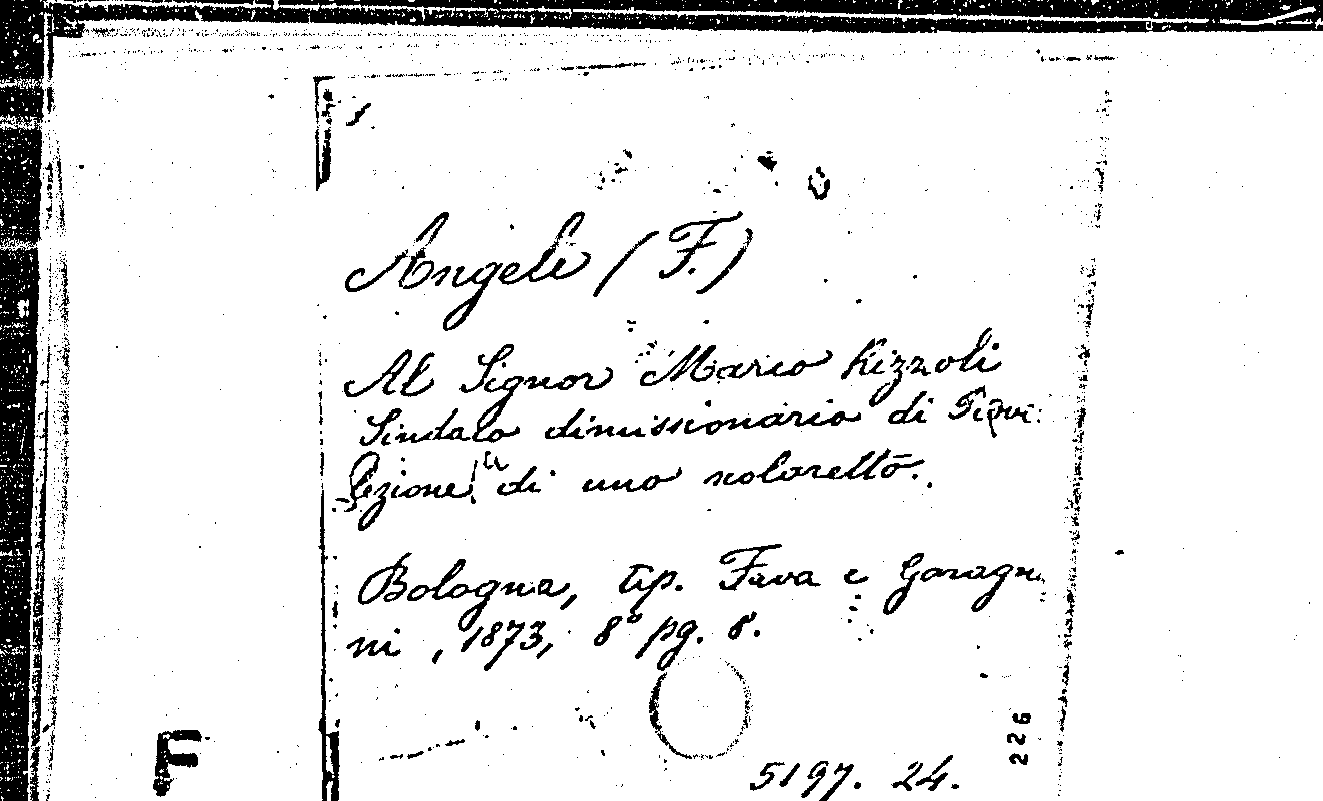 Angeli (F.)
Al Signor Marco Rizzoli
Sindaco dimissionario di
lezione di uno scolaretto.
Bologna, tip. Fava e Garagn
ni, 1873, 8° pg. 8.
226
F
5197. 24.